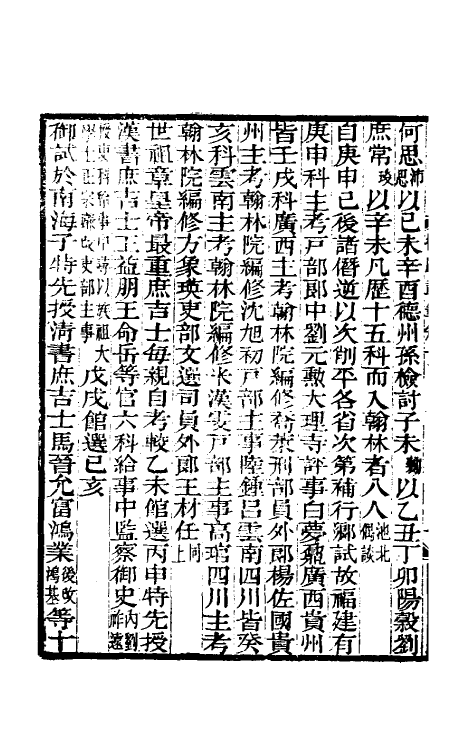 何思沛思以己未辛酉德州孫檢討子未勷以乙丑丁卯陽穀劉
庶常琰以辛未凡歷十五科而入翰林者八人池北偶談
自庚申己後諸僭逆以次削平各省次第補行鄉試故福建有
庚申科主考戸部郞中劉元勲大理寺評事白夢鼐廣西貴州
皆壬戌科廣西主考翰林院編修喬萊刑部員外郞楊佐國貴
州主考翰林院編修沈旭初戸部主事陸鍾呂雲南四川皆癸
亥科雲南主考翰林院編修米漢雯戸部主事高琯四川主考
翰林院編修方象瑛吏部文選司員外郞王材任同上
世祖章皇帝最重庶吉士每親自考較乙未館選丙申特先授
漢書庶吉士王益朋王命岳等官六科給事中監察御史内劉祚遠
授吏科給事中尋以扳祖大
學士正宗蔭改吏部主事戊戌館選己亥
御試於南海子特先授淸書庶吉士馬晉允富鴻業後改鴻基等十